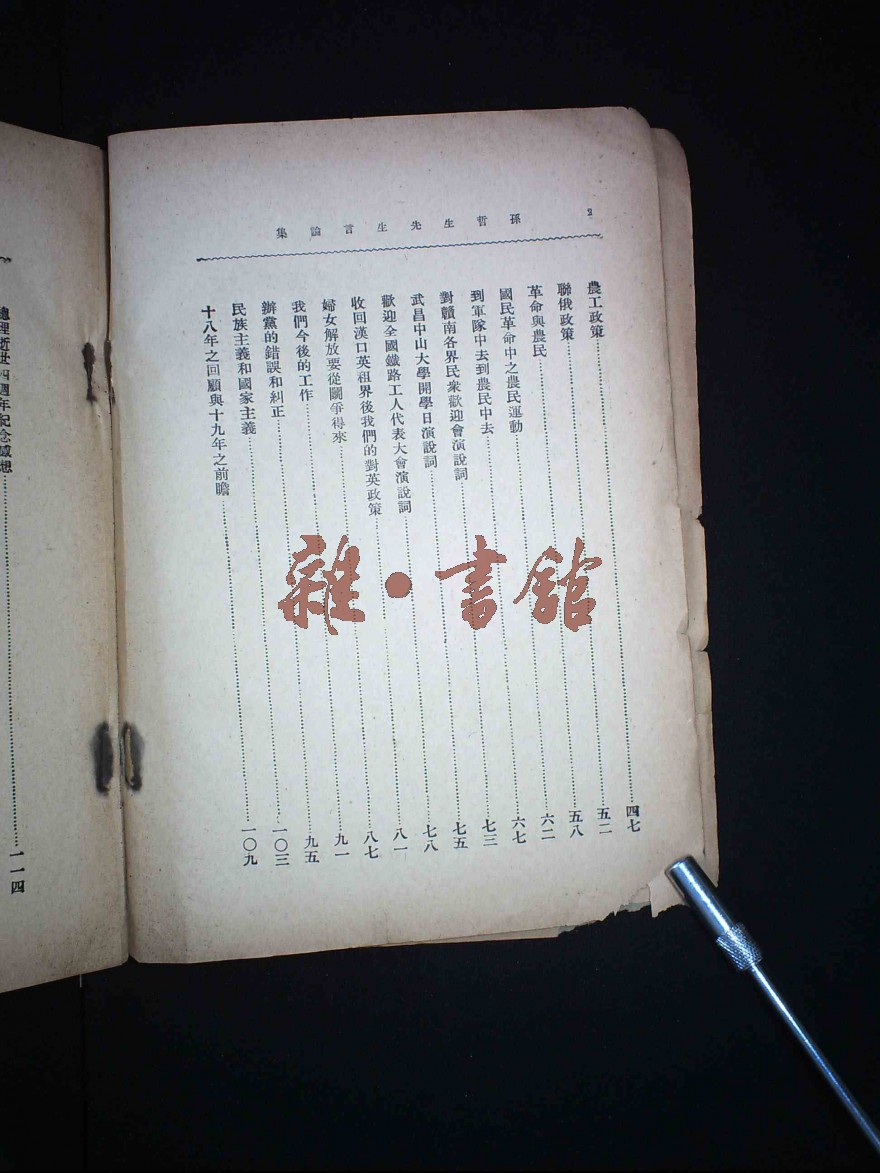 2
孫哲生先生言論集
農工政策……四七
聯俄政策……五二
革命與農民……五八
國民革命中之農民運動……六二
到軍隊中去到農民中去……六七
對贛南各界民衆歡迎會演說詞……七三
武昌中山大學開學日演說詞……七五
歡迎全國鐵路工人代表大會演說詞……七八
收回漢口英租界後我們的對英政策……八一
婦女解放要從鬭爭得來……八七
我們今後的工作……九一
辦黨的錯誤和糾正……九五
民族主義和國家主義……一〇三
十八年之回顧與十九年之前瞻……一〇九
總理逝世四週年紀念感想……一一四
雜·書館